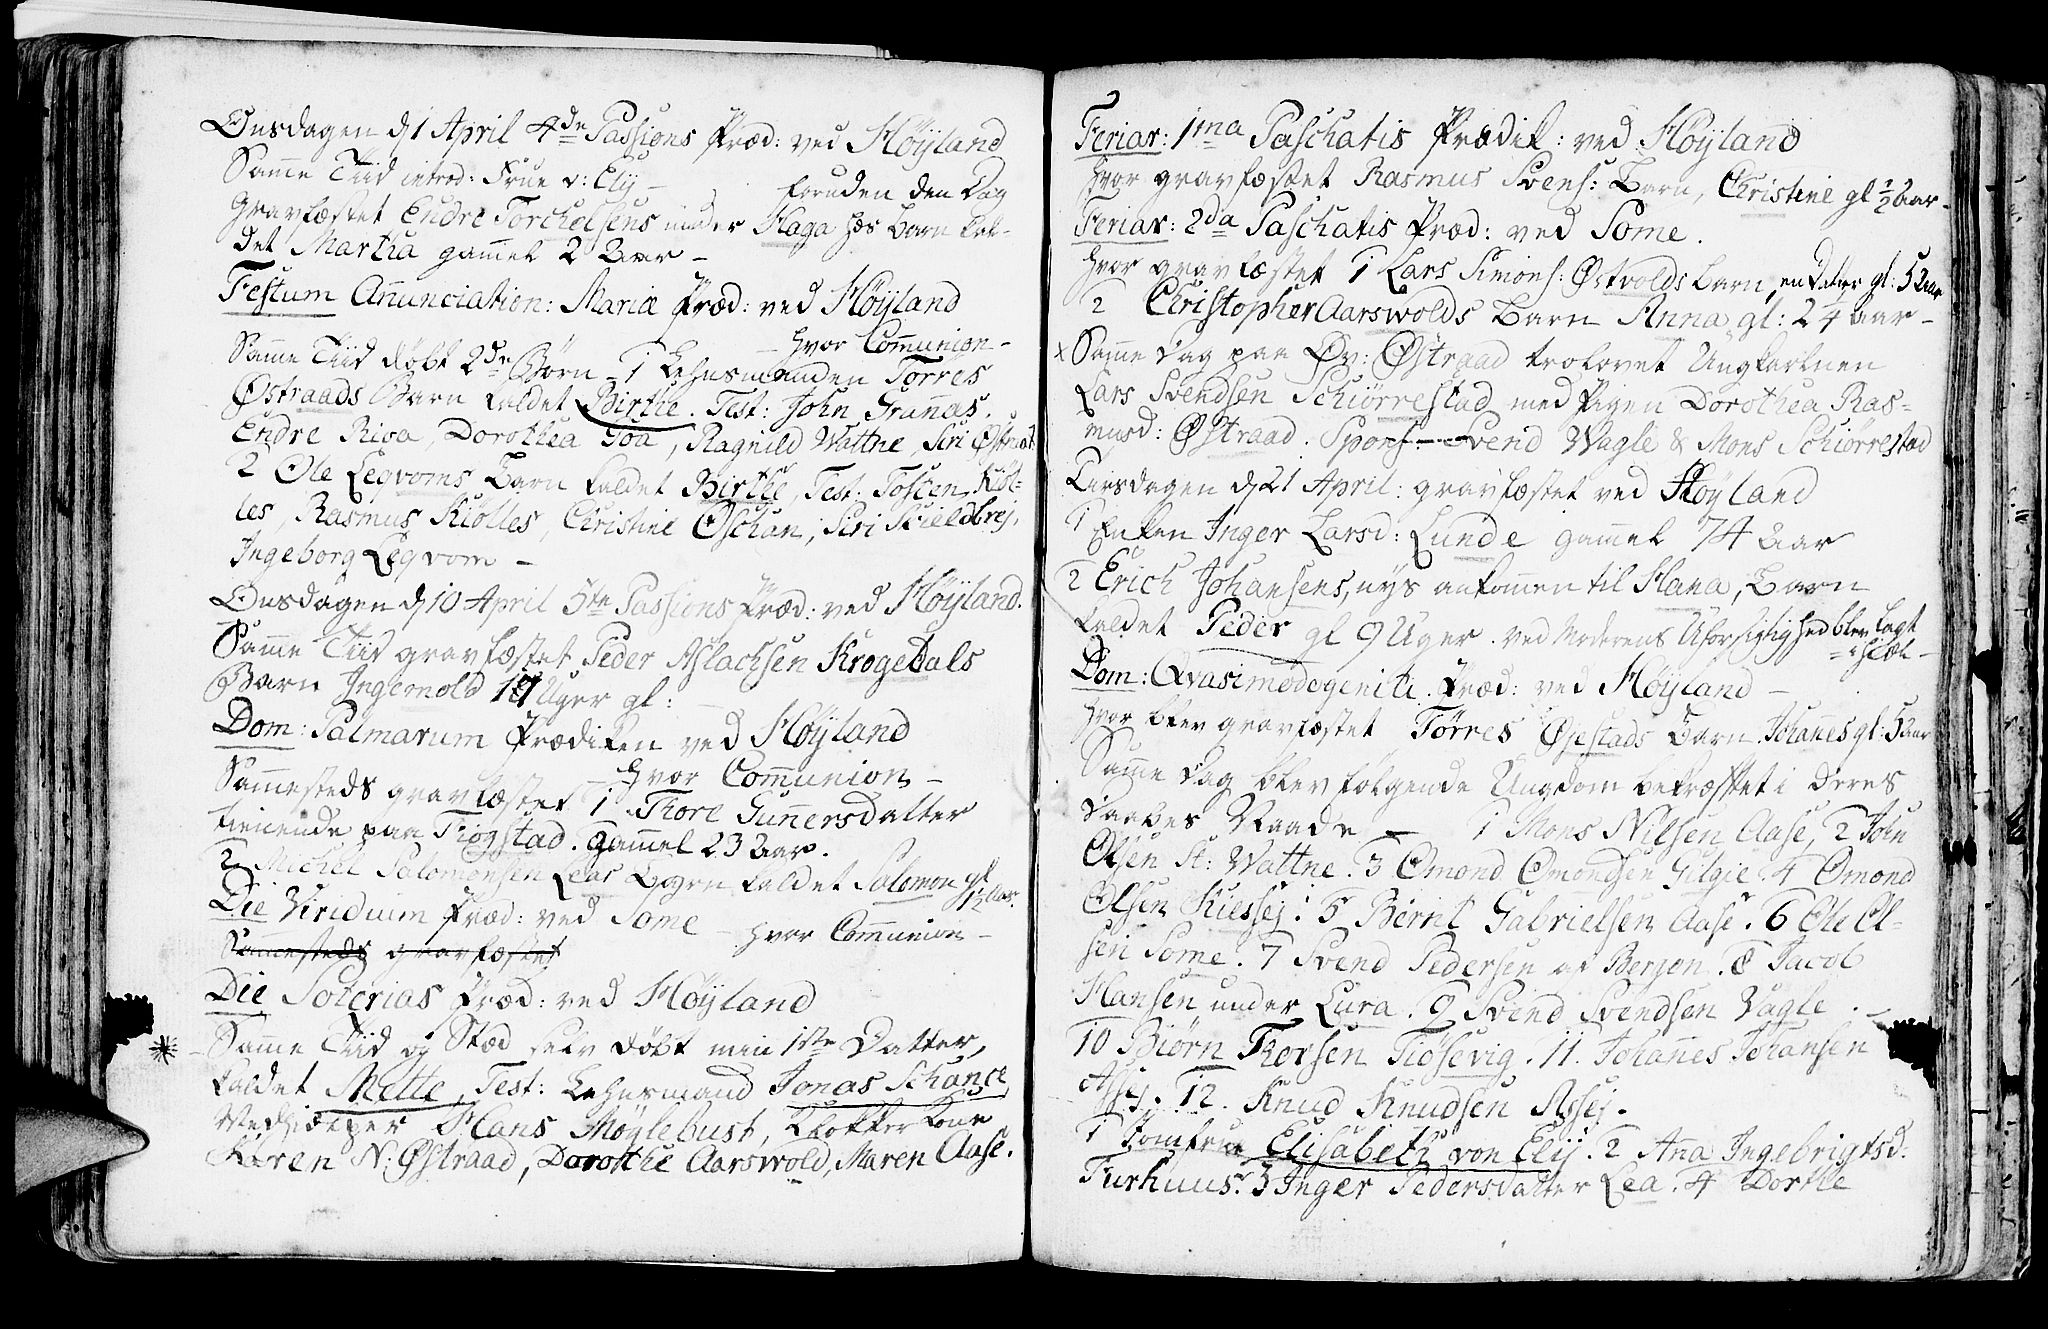 Onsdagen d 1 April 4de Passions Præd: ved Höÿland
Same Tiid introd: Frue v: Elÿ – foruden den Dag
Gravfæstet Endre Torchelsens under Haga hos Barn kal-
det Martha gamel 2 Aar –
Festum Anunciation: Mariæ Præd: ved Höÿland
– hvor Comunion –
Same Tiid döbt 2de Börn – 1 Lehnsmanden Torres
Østraads Barn kaldet Birthe. Test: John Granas.
Endre Riva, Dorothea Goa, Ragnild Wattne, Siri Østraat
2 Ole Leqvoms Barn kaldet Birthe, Test: Tosten Kiöl-
les, Rasmus Kiölles, Christine Oschan, Siri Skieldbrej,
Ingeborg Leqvom –
Onsdagen d 10 April 5te Passions Præd: ved Höÿland.
Same Tiid gravfæstet Peder Aslachsen Krogedals
Barn Ingemold 19 Uger gl:
Dom: Palmarum Prædiken ved Höÿland
– hvor Comunion –
Samesteds gravfæstet 1 Thore Gunersdatter
tienende paa Trogstad. gamel 23 Aar.
2 Michel Salomonsen Leas Barn kaldet Salomon gl
1/2 Aar.
Die Viridium Præd: ved Some – hvor Comunion –
Samesteds gravfæstet
Die Soterias Præd: ved Höÿland
Same Tiid og Stæd selv döbt min 1ste Datter,
kaldet Mette, Test: Lehnsmand Jonas Schanct
Medhielper Hans Möÿlebust, Klokker Kone
Karen N: Østraad, Dorothe Aarswold, Maren Aase.
Feriar: 1ma Paschatis Prædik: ved Höÿland
hvor gravfæstet Rasmus Svens: Barn, Christine gl 1/2 Aar –
Feriar: 2da Paschatis Præd: ved Some.
hvor gravfæstet 1 Lars Simons: Østvolds Barn, en Datter gl: 5 Aar
2 Christopher Aarswolds Barn Anna gl: 24 Aar –
x Same Dag paa Øv: Østraad trolovet Ungkarlnen
Lars Svendsen Schiörrestad med Pigen Dorothea Ras-
musd: Østraad. Spons – Svend Wagle & Mons Schiörrestad
Tirsdagen d 21 April: gravfæstet ved Höÿland
1 Enken Inger Larsd: Lunde gamel 74 Aar
2 Erich Johansens, nys ankomen til Hana, Barn
kaldet Peder gl 9 Uger. ved Moderens Uforsigtighed blev lagt
ihiæl –
Dom: Qvasimodogeniti. Præd: ved Höÿland –
hvor blev gravfæstet Törres Øjestads Barn Johanes gl: 5 Aar
Same Dag blev fölgende Ungdom bekræftet i deres
Daabes Naade – 1 Mons Nilsen Aase, 2 John
Olsen St: Wattne. 3 Omond Omondsen Gilgie. 4 Omond
Olsen Kiessej. 5 Bernt Gabrielsen Aase. 6 Ole Ol-
sen Some. 7 Svend Pedersen af Berjen. 8 Jacob
Hansen under Lura. 9 Svend Svendsen Vagle. –
10 Biörn Thorsen Tiösevig. 11. Johanes Johansen
Assej. 12. Knud Knudsen Assej.
1 Jomfrue Elisabeth von Elÿ. 2 Ana Ingebrigtsd.
Furhuus. 3 Inger Pedersdatter Lea. 4 Dorthe